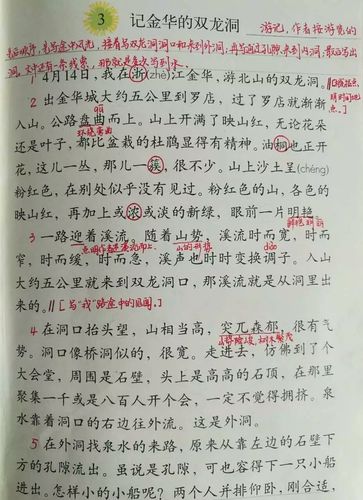 3 记金华的双龙洞
游记,作者按游览的
先后顺序,先写途中风光,接着写双龙洞洞口和来到外洞,再写通过孔隙来到内洞,最后写出
洞。文中还有一条线索,那就是
1 4月14日,我在浙(zhè)江金华,游北山的双龙洞。
2 出金华城大约五公里到罗店,过了罗店就渐渐
入山。公路盘曲而上。山上开满了映山红,无论花朵
环绕弯曲
还是叶子,都比盆栽的杜鹃显得有精神。油桐也正开
花,这儿一丛,那儿一簇,很不少。山上沙土呈(chéng)
粉红色,在别处似乎没有见过。粉红色的山,各色的
映山红,再加上或浓或淡的新绿,眼前一片明艳。
3 一路迎着溪流。随着山势,溪流时而宽,时而
窄,时而缓,时而急,溪声也时时变换调子。入山
大约五公里就来到双龙洞口,那溪流就是从洞里出
来的。
4 在洞口抬头望,山相当高,突兀森郁,很有气
势。洞口像桥洞似的,很宽。走进去,仿佛到了个
大会堂,周围是石壁,头上是高高的石顶,在那里
聚集一千或是八百人开个会,一定不觉得拥挤。泉
水靠着洞口的右边往外流。这是外洞。
5 在外洞找泉水的来路,原来从靠左边的石壁下
方的孔隙流出。虽说是孔隙,可也容得下一只小船
进出。怎样小的小船呢?两个人并排仰卧,刚合适,